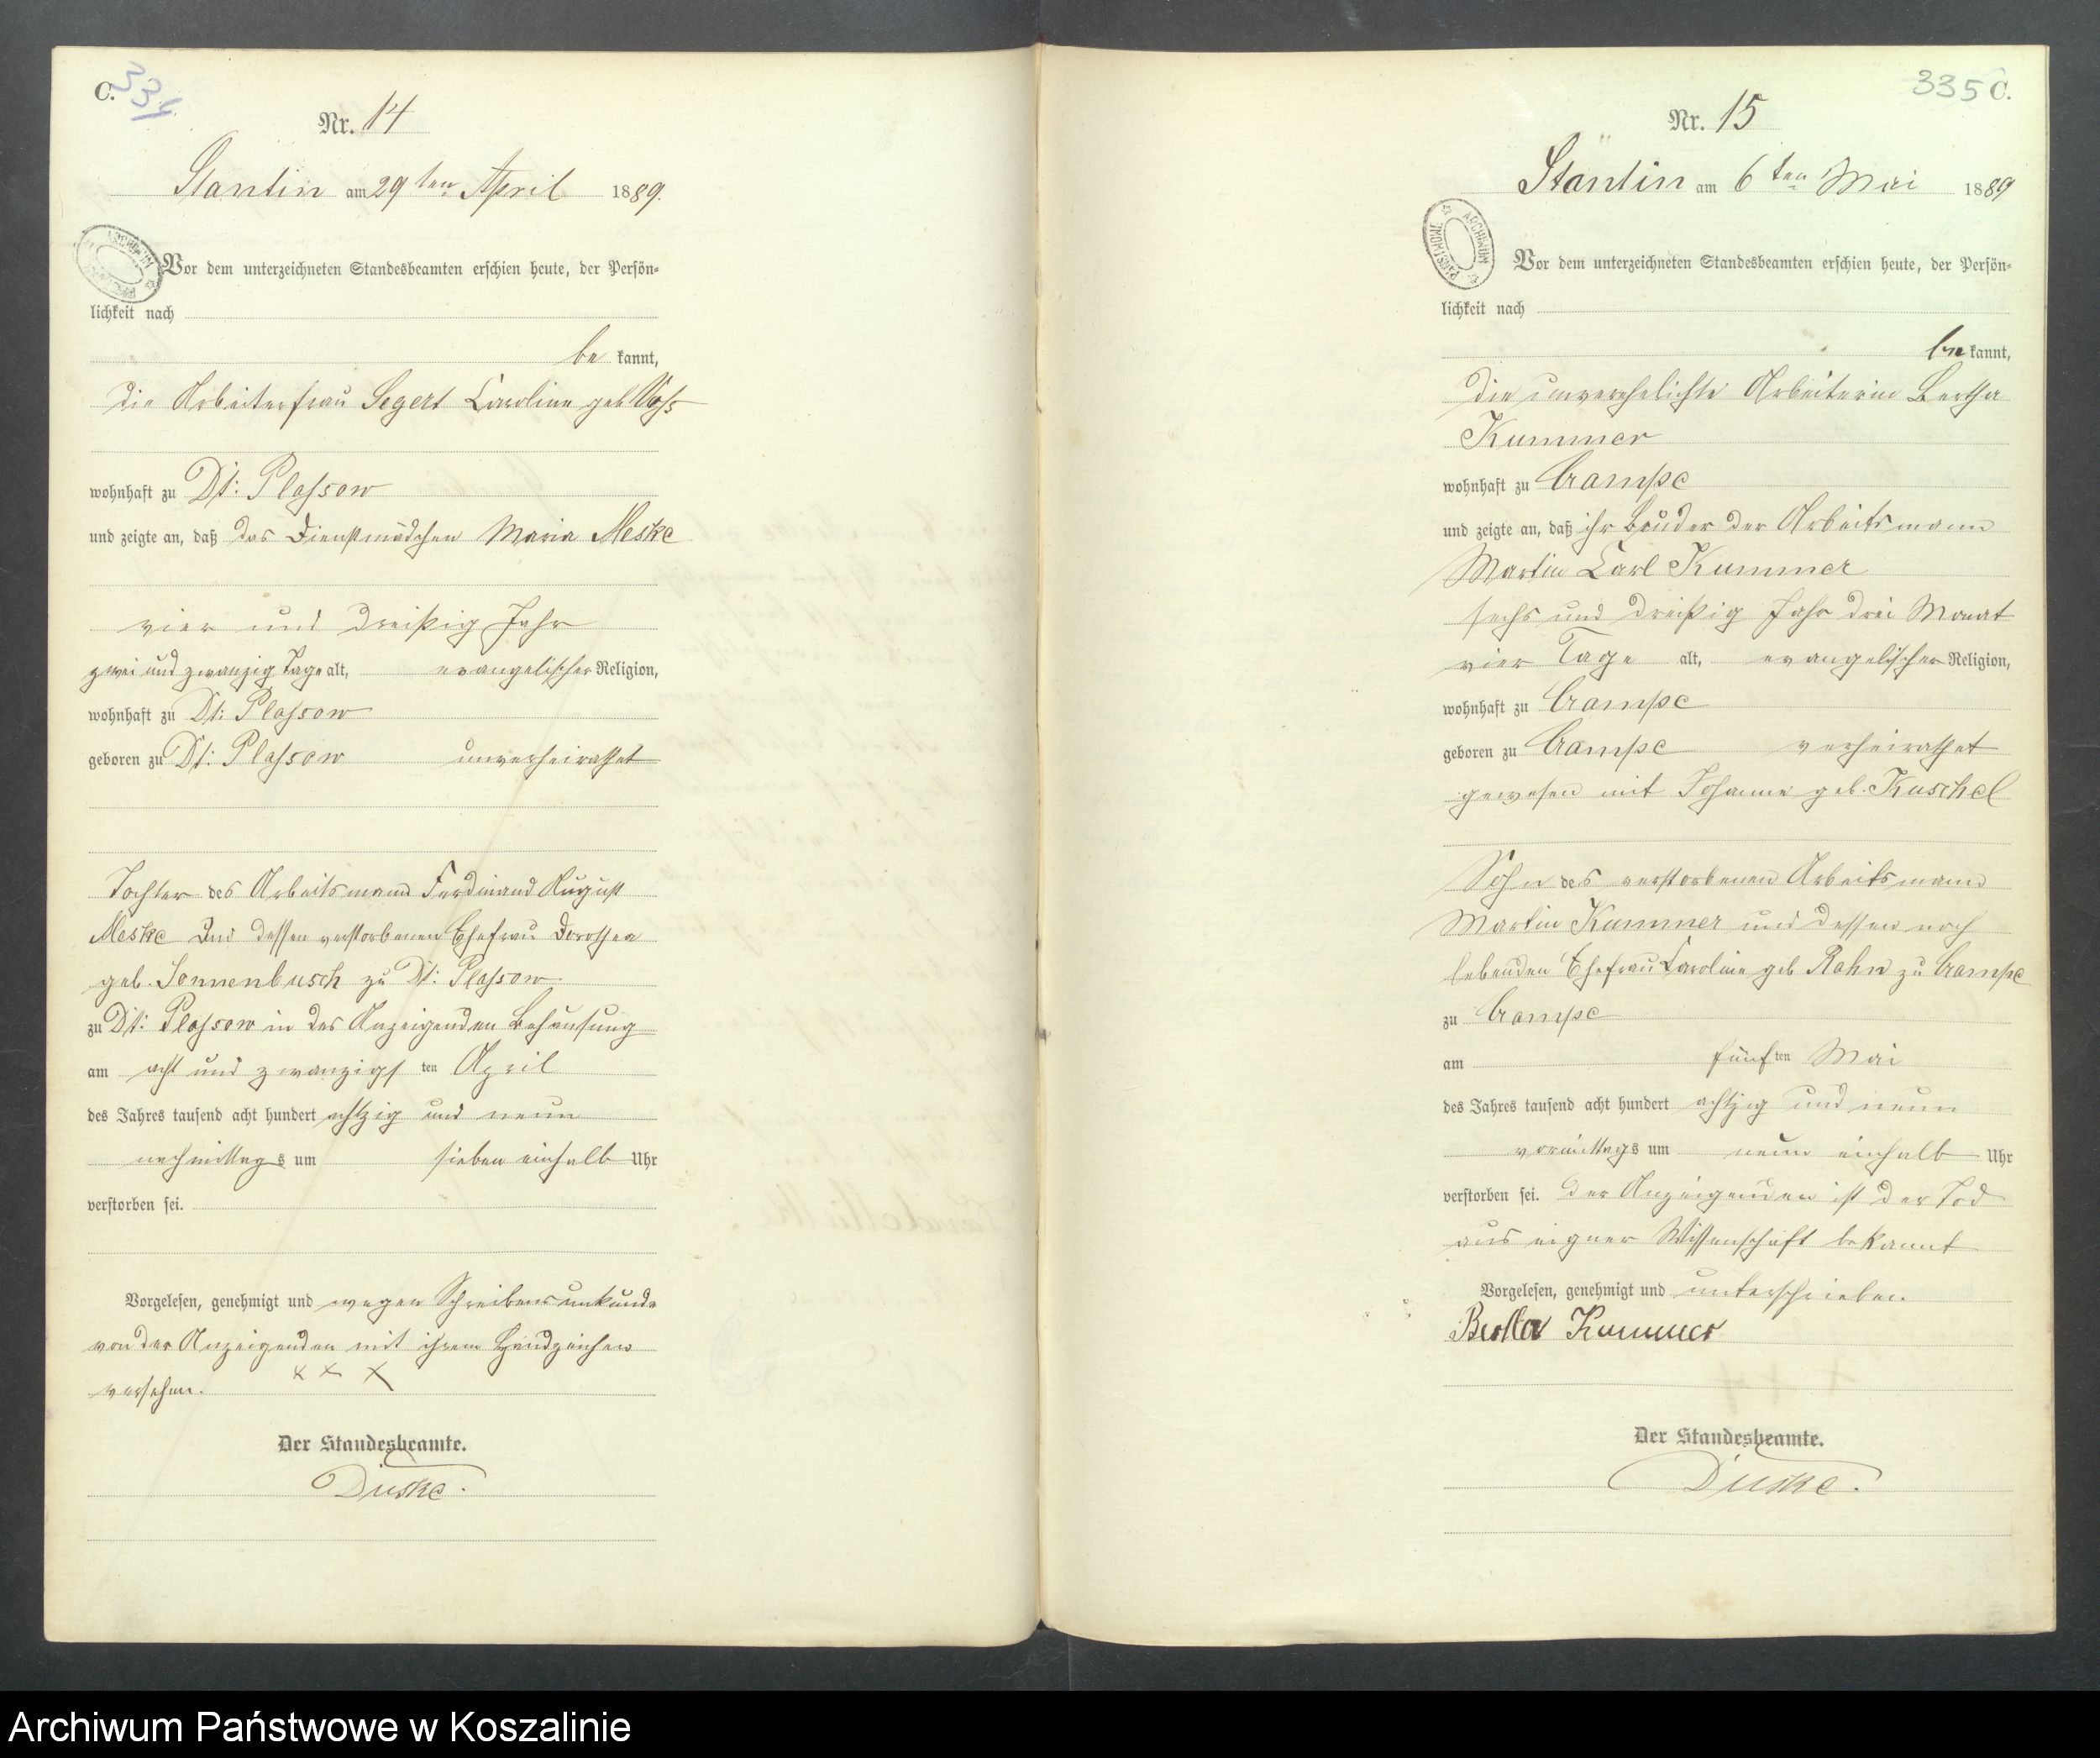 C.
334
Nr. 14
Stantin am 29ten April 1889.
Vor dem unterzeichneten Standesbeamten erschien heute, der Persön-
lichkeit nach
be kannt,
die Arbeiterfrau Segert Caroline geb Voß
wohnhaft zu Dt: Plassow
und zeigte an, daß das Dienstmädchen Maria Meske
vier und dreißig Jahr
zwei und zwanzig Tage alt, evangelischer Religion,
wohnhaft zu Dt: Plassow
geboren zu Dt: Plassow unverheirathet
Tochter des Arbeitsmann Ferdinand August
Meske und dessen verstorbenen Ehefrau Dorothea
geb. Sonnenbusch zu Dt: Plassow
zu Dt: Plassow in der Anzeigenden Behausung
am acht und zwanzigsten April
des Jahres tausend acht hundert achtzig und neun
nachmittags um sieben einhalb Uhr
verstorben sei.
Vorgelesen, genehmigt und wegen Schreibensunkunde
von der Anzeigenden mit ihrem Handzeichen
versehen. x x x
Der Standesbeamte.
Diuske.
335 C.
Nr. 15
Stantin am 6ten Mai 1889
ARCHIWUM PAŃSTWOWE
Vor dem unterzeichneten Standesbeamten erschien heute, der Persön-
lichkeit nach
be kannt,
die unverehelichte Arbeiterin Bertha
Kummer
wohnhaft zu Crampe
und zeigte an, daß ihr Bruder der Arbeitsmann
Martin Carl Kummer
sechs und dreißig Jahr drei Monat
vier Tage alt, evangelischer Religion,
wohnhaft zu Crampe
geboren zu Crampe verheirathet
gewesen mit Johanne geb. Kuschel
Sohn des verstorbenen Arbeitsmann
Martin Kummer und dessen noch
lebenden Ehefrau Caroline geb Rahn zu Crampe
zu Crampe
am fünften Mai
des Jahres tausend acht hundert achtzig und neun
vormittags um neun einhalb Uhr
verstorben sei. Der Anzeigenden ist der Tod
aus eigner Wissenschaft bekannt
Vorgelesen, genehmigt und unterschrieben
Bertha Kummer
Der Standesbeamte.
Diuske.
Archiwum Państwowe w Koszalinie